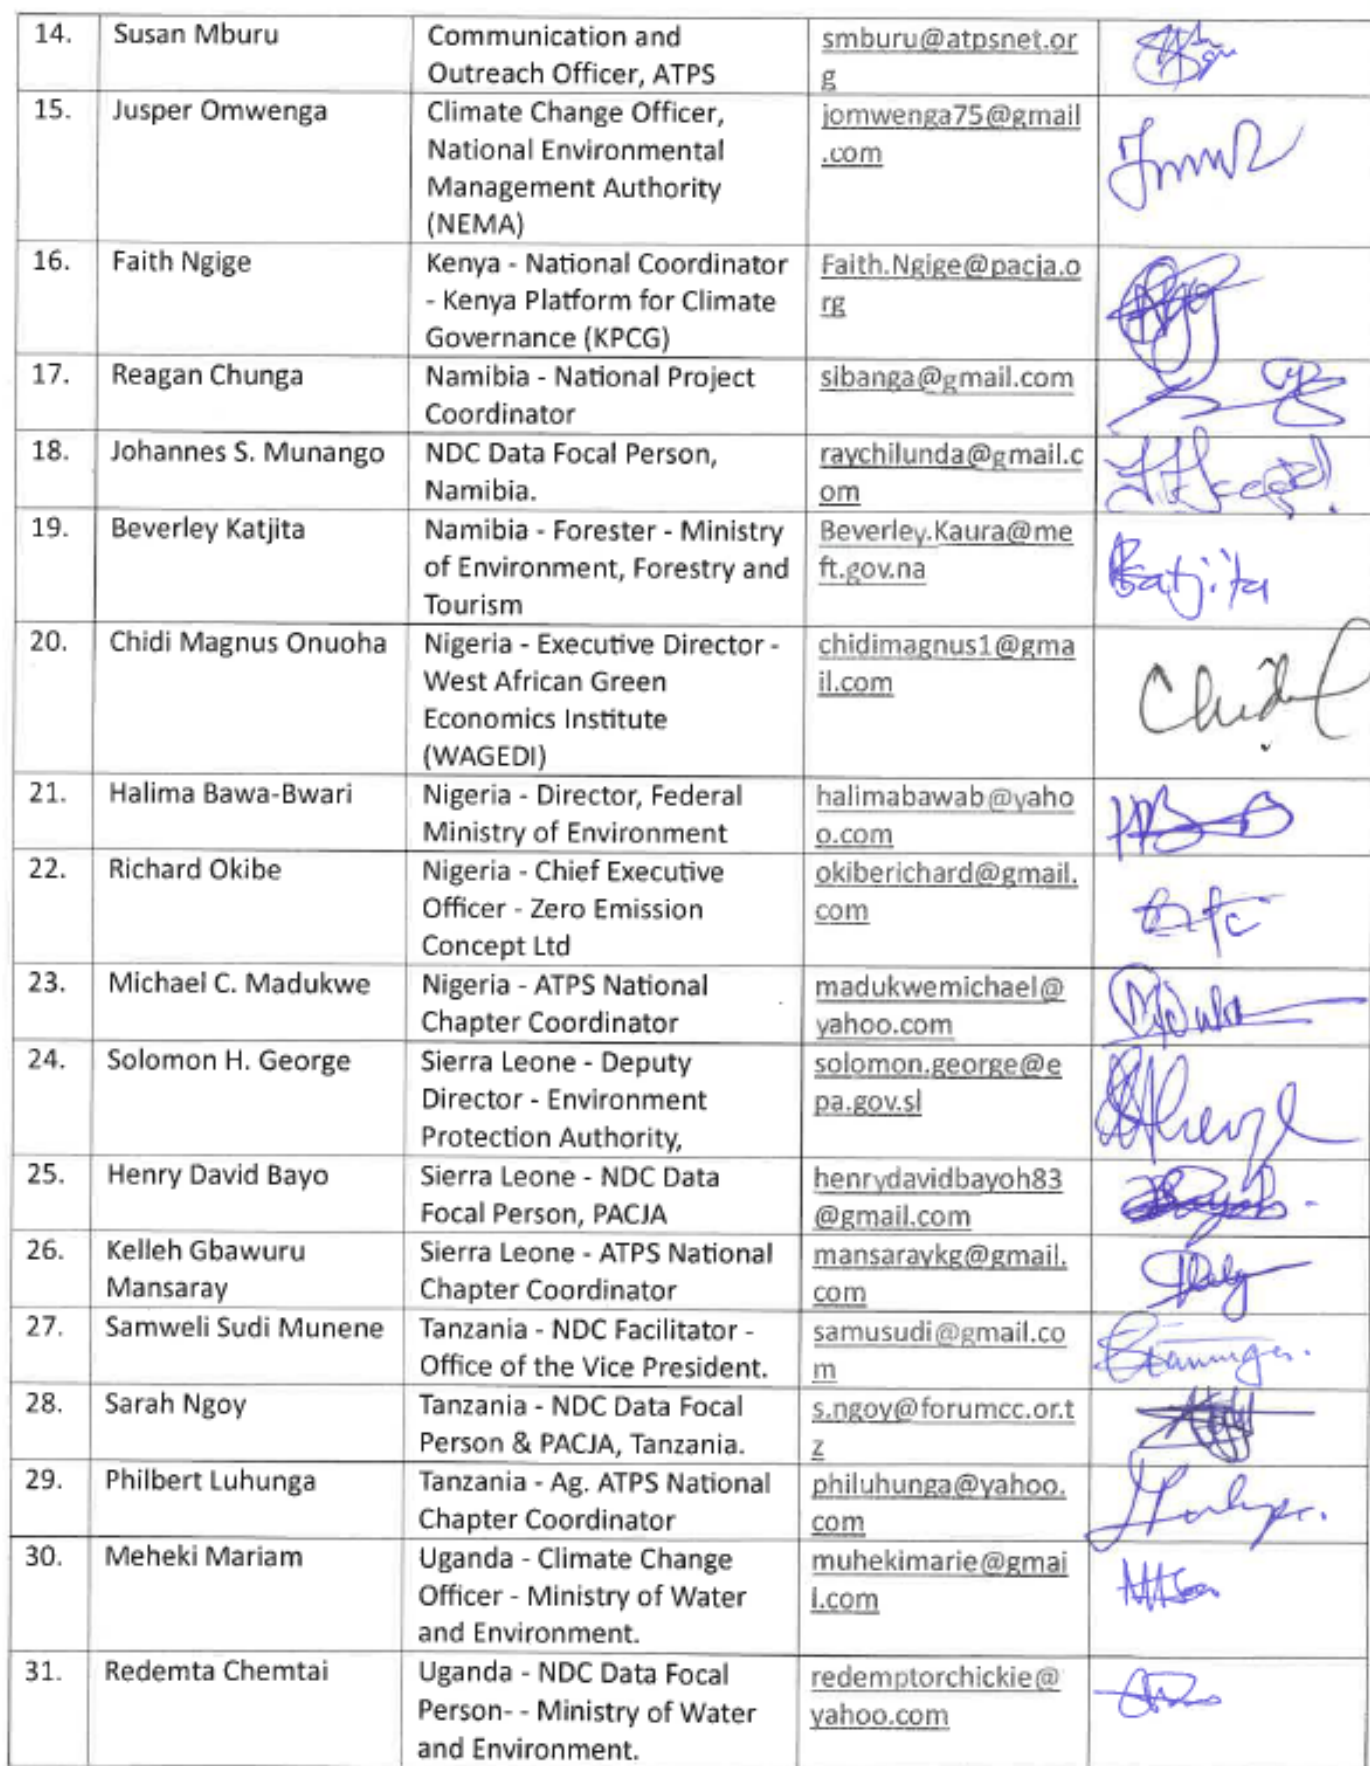 14.
Susan Mburu
Communication and
Outreach Officer, ATPS
smburu@atpsnet.or
g
15.
Jusper Omwenga
Climate Change Officer,
National Environmental
Management Authority
(NEMA)
jomwenga75@gmail
.com
16.
Faith Ngige
Kenya - National Coordinator
- Kenya Platform for Climate
Governance (KPCG)
Faith.Ngige@pacja.o
rg
17.
Reagan Chunga
Namibia - National Project
Coordinator
sibanga@gmail.com
18.
Johannes S. Munango
NDC Data Focal Person,
Namibia.
raychilunda@gmail.c
om
19.
Beverley Katjita
Namibia - Forester - Ministry
of Environment, Forestry and
Tourism
Beverley.Kaura@me
ft.gov.na
Katjita
20.
Chidi Magnus Onuoha
Nigeria - Executive Director -
West African Green
Economics Institute
(WAGEDI)
chidimagnus1@gma
il.com
21.
Halima Bawa-Bwari
Nigeria - Director, Federal
Ministry of Environment
halimabawab@yaho
o.com
22.
Richard Okibe
Nigeria - Chief Executive
Officer - Zero Emission
Concept Ltd
okiberichard@gmail.
com
23.
Michael C. Madukwe
Nigeria - ATPS National
Chapter Coordinator
madukwemichael@
yahoo.com
24.
Solomon H. George
Sierra Leone - Deputy
Director - Environment
Protection Authority,
solomon.george@e
pa.gov.sl
25.
Henry David Bayo
Sierra Leone - NDC Data
Focal Person, PACJA
henrydavidbayoh83
@gmail.com
26.
Kelleh Gbawuru
Mansaray
Sierra Leone - ATPS National
Chapter Coordinator
mansaraykg@gmail.
com
27.
Samweli Sudi Munene
Tanzania - NDC Facilitator -
Office of the Vice President.
samusudi@gmail.co
m
28.
Sarah Ngoy
Tanzania - NDC Data Focal
Person & PACJA, Tanzania.
s.ngoy@forumcc.or.t
z
29.
Philbert Luhunga
Tanzania - Ag. ATPS National
Chapter Coordinator
philuhunga@yahoo.
com
30.
Meheki Mariam
Uganda - Climate Change
Officer - Ministry of Water
and Environment.
muhekimarie@gmai
l.com
31.
Redemta Chemtai
Uganda - NDC Data Focal
Person- - Ministry of Water
and Environment.
redemptorchickie@
yahoo.com